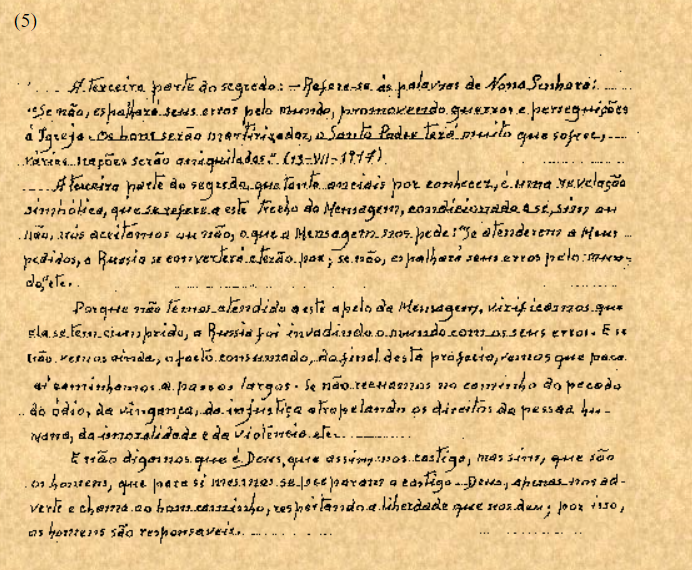 (5)
A terceira parte do segredo: — Refere-se às palavras de Nossa Senhora:
"Se não, espalhará seus erros pelo mundo, promovendo guerras e perseguições
à Igreja. Os bons serão martirizados, o Santo Padre terá muito que sofrer,
várias nações serão aniquiladas." (13-VII-1917)
A terceira parte do segredo, que tanto anciais por conhecer, é uma revelação
simbólica, que se refere a este trecho da Mensagem, condicionado a se, sim ou
não, nós aceitamos ou não, o que a Mensagem nos pede: "Se atenderem a Meus
pedidos, a Russia se converterá e terão paz; se não, espalhará seus erros pelo mun-
do," etc.
Porque não temos atendido a este apelo da Mensagem, verificamos que
ela se tem cumprido, a Russia foi invadindo o mundo com os seus erros. E se
não vemos ainda, o facto consumado, do final desta profecia, vemos que para
aí caminhamos a passos largos. Se não recuamos no caminho do pecado
do ódio, da vingança, da injustiça atropelando os direitos da pessoa hu-
mana, da imoralidade e da violência etc.
E não digamos que é Deus, que assim nos castiga, mas sim, que são
os homens, que para si mesmos se preparam o castigo. Deus, apenas nos ad-
verte e chama ao bom caminho, respeitando a liberdade que nos deu; por isso,
os homens são responsaveis.